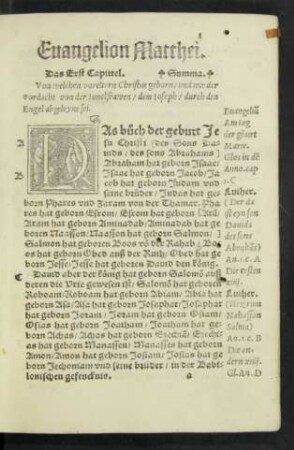 Euangelion Matthei.
Das Erst Capitel. Summa.
Von welchen voreltern Christus geborn / vnd wie der
vordacht von der Junckfrawen / dem Joseph / durch den
Engel abgeleynt sei.
DAs bůch der geburt Je
su Christi (des Sons Da
uids / des sens Abrahams)
Abraham hat geborn Isaac /
Isaac hat geborn Jacob / Ja
cob hat geborn Judam vnd
seine brüder / Judas hat ge
born Phares vnd Zaram von der Thamar. Pha
res hat geborn Esrom / Esrom hat geborn (Ara)
Aram hat geborn Aminadab / Aminadab hat ge
born Naasson / Naasson hat geborn Salmon /
Salmon hat geborn Boos võ der Rahab / Bo
os hat geborn Obed auß der Ruth / Obed hat ge
born Jesse / Jesse hat geborn Dauid den König.
Dauid aber der König hat geborn Salomō auß
deren die Urie gewesen ist / Salomō hat geborn
Roboam / Roboam hat geborn Abiam / Abias hat
geborn Asa / Asa hat geborn Josaphat / Josaphat
hat geborn Joram / Joram hat geborn Osiam /
Osias hat geborn Joatham / Joatham hat ge
born Achas / Achas hat geborn Ezechiā / Ezechi
as hat geborn Manassen / Manasses hat geborn
Amon / Amon hat geborn Josiam / Josias hat ge
born Jechoniam vnd seine brüder / in der Babi
lonischen gefencknis.
A
B
Euangeliū
Am tag
der geburt
Marie.
Glos in dē
Anno. cap
C
Luther.
(Der da
ist eyn son
Dauids
des sons
Abrahā)
An. c. A
Die ersten
xiiij.
Luther.
Nahasson
Salma)
An. c. B
Die an-
dern xiiij.
Cl. An. D